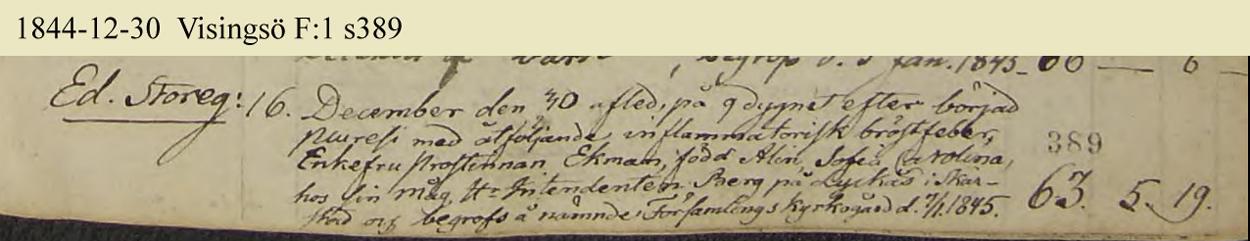 1844-12-30 Visingsö F:1 s389
begrop d. 3 Jan. 1845. 60 — 6 —
Ed. Storeg: 16. December den 30 afled, på 9 dygnet efter börjad
pluresi med åtföljande inflammatorisk bröstfeber,
389
Enkefru Prostinnan Ekman, född Alin, Sofia Carolina,
hos sin måg, Hr Intendenten Berg på Lyckås i Skär-
63. 5. 19.
stad och begrofs å nämnde Församlings kyrkogård d. 7/1 1845.